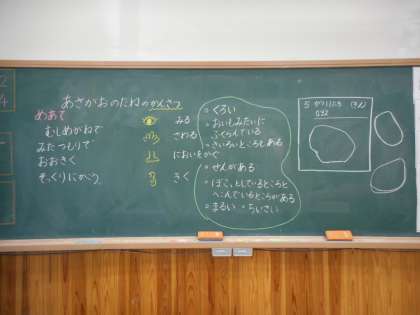 あさがおのたねのかんさつ
めあて
むしめがねで
みたつもりで
おおきく
そっくりにかこう。
みる
さわる
においをかぐ
きく
くろい
おいもみたいに
ふくらんでいる
きいろいところもある
せんがある
ぼこっとしているところと
へこんでいるところがある
まるい ・ちいさい